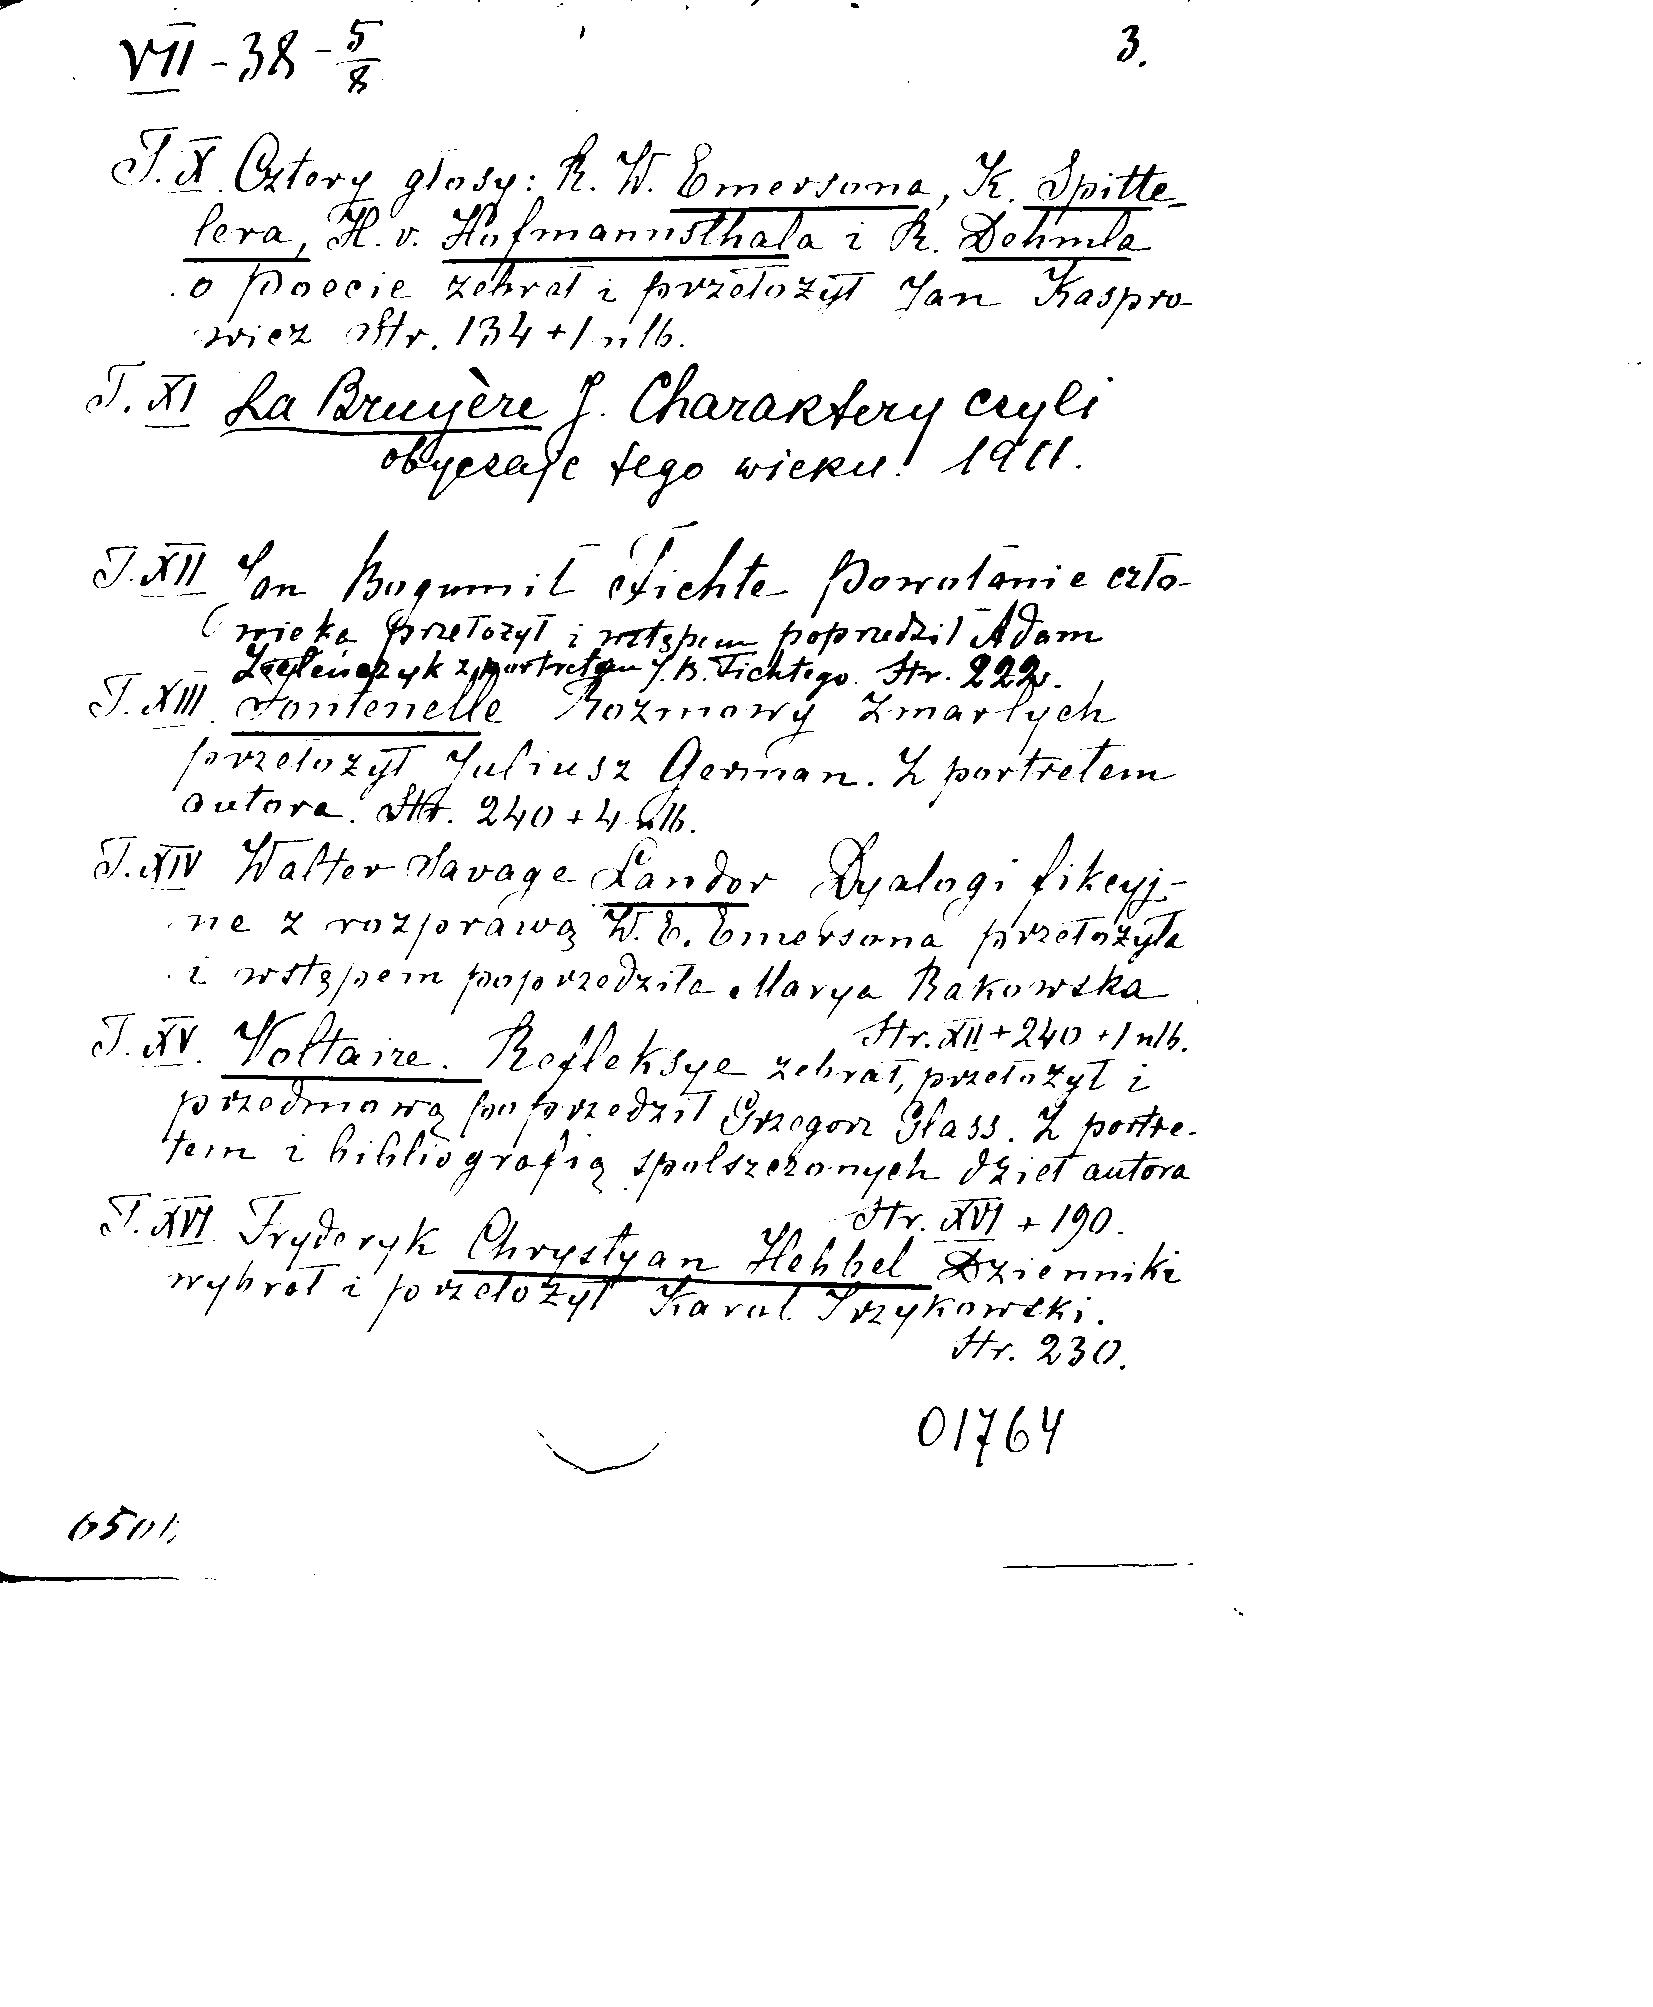 VII - 38 - 5/8 3.
T. X Cztery głosy: R. W. Emersona, K. Spitte-
lera, H. v. Hofmannsthala i R. Dehmla
o poecie zebrał i przełożył Jan Kaspro-
wicz Str. 134 + 1 nlb.
T. XI La Bruyère J. Charaktery czyli
obyczaje tego wieku. 1911.
T. XII Jan Bogumił Fichte Powołanie czło-
wieka przełożył i wstępem poprzedził Adam
Zieleńczyk z portretem J. B. Fichtego. Str. 222.
T. XIII Fontenelle Rozmowy Zmarłych
przełożył Juliusz German. Z portretem
autora. Str. 240 + 4 nlb.
T. XIV Walter Savage Landor Dyalogi fikcyj-
ne z rozprawą W. E. Emersona przełożyła
i wstępem poprzedziła Marya Rakowska
Str. XII + 240 + 1 nlb.
T. XV. Voltaire. Refleksye zebrał, przełożył i
przedmową poprzedził Grzegorz Glass. Z portre-
tem i bibliografią spolszczonych dzieł autora
Str. XVI + 190.
T. XVI Fryderyk Chrystyan Hebbel Dzienniki
wybrał i przełożył Karol Irzykowski.
Str. 230.
01764